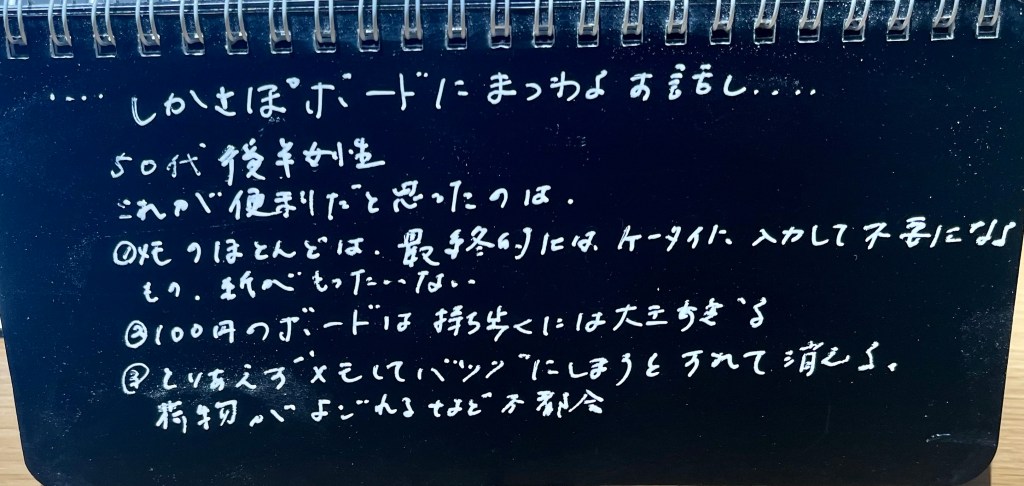 ‥‥ しかさぽボードにまつわるお話し‥‥
50代後半女性
これが便利だと思ったのは.
①メモのほとんどは、最終的には、ケータイに入力して不要になる
もの、紙がもったいない.
②100円のボードは持ち歩くには大きすぎる
③とりあえずメモしてバッグにしまうとすれて消える。
荷物がよごれるなど不都合